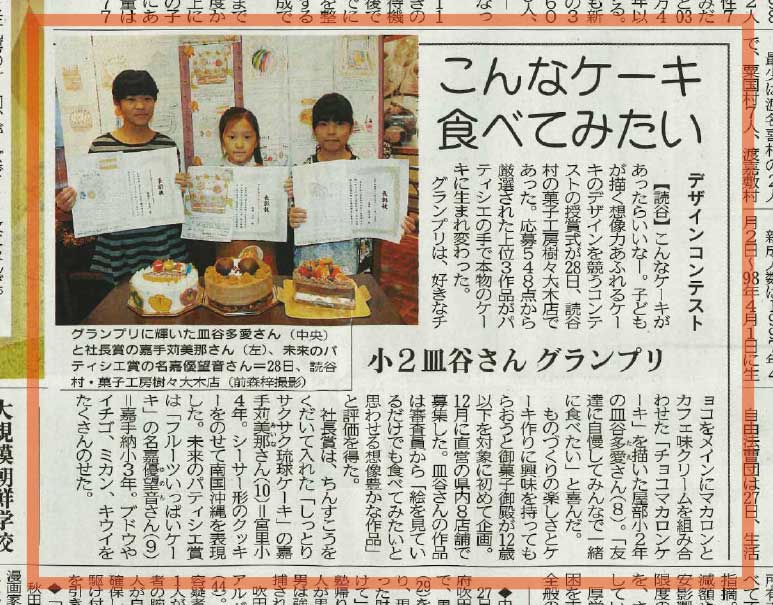 こんなケーキ
食べてみたい
デザインコンテスト
【読谷】こんなケーキが
あったらいいなー。子ども
が描く想像力あふれるケー
キのデザインを競うコンテ
ストの授賞式が28日、読谷
村の菓子工房樹々大木店で
あった。応募548点から
厳選された上位3作品がパ
ティシエの手で本物のケー
キに生まれ変わった。
グランプリは、好きなチ
小2皿谷さん グランプリ
ョコをメインにマカロンと
カフェ味クリームを組み合
わせた「チョコマカロンケ
ーキ」を描いた屋部小2年
の皿谷多愛さん(8)。「友
達に自慢してみんなで一緒
に食べたい」と喜んだ。
ものづくりの楽しさとケ
ーキ作りに興味を持っても
らおうと御菓子御殿が12歳
以下を対象に初めて企画。
12月に直営の県内8店舗で
募集した。皿谷さんの作品
は審査員から「絵を見てい
るだけでも食べてみたいと
思わせる想像豊かな作品」
と評価を得た。
社長賞は、ちんすこうを
くだいて入れた「しっとり
サクサク琉球ケーキ」の嘉
手苅美那さん(10)=宮里小
4年。シーサー形のクッキ
ーをのせて南国沖縄を表現
した。未来のパティシエ賞
は「フルーツいっぱいケー
キ」の名嘉優望音さん(9)
=嘉手納小3年。ブドウや
イチゴ、ミカン、キウイを
たくさんのせた。
グランプリに輝いた皿谷多愛さん(中央)
と社長賞の嘉手苅美那さん(左)、未来のパ
ティシエ賞の名嘉優望音さん=28日、読谷
村・菓子工房樹々大木店(前森梓撮影)
表彰状
大規模朝鮮学校
で、粟国村7人、渡嘉敷村
月2日~98年4月1日に生
自由法曹団は27日、生活